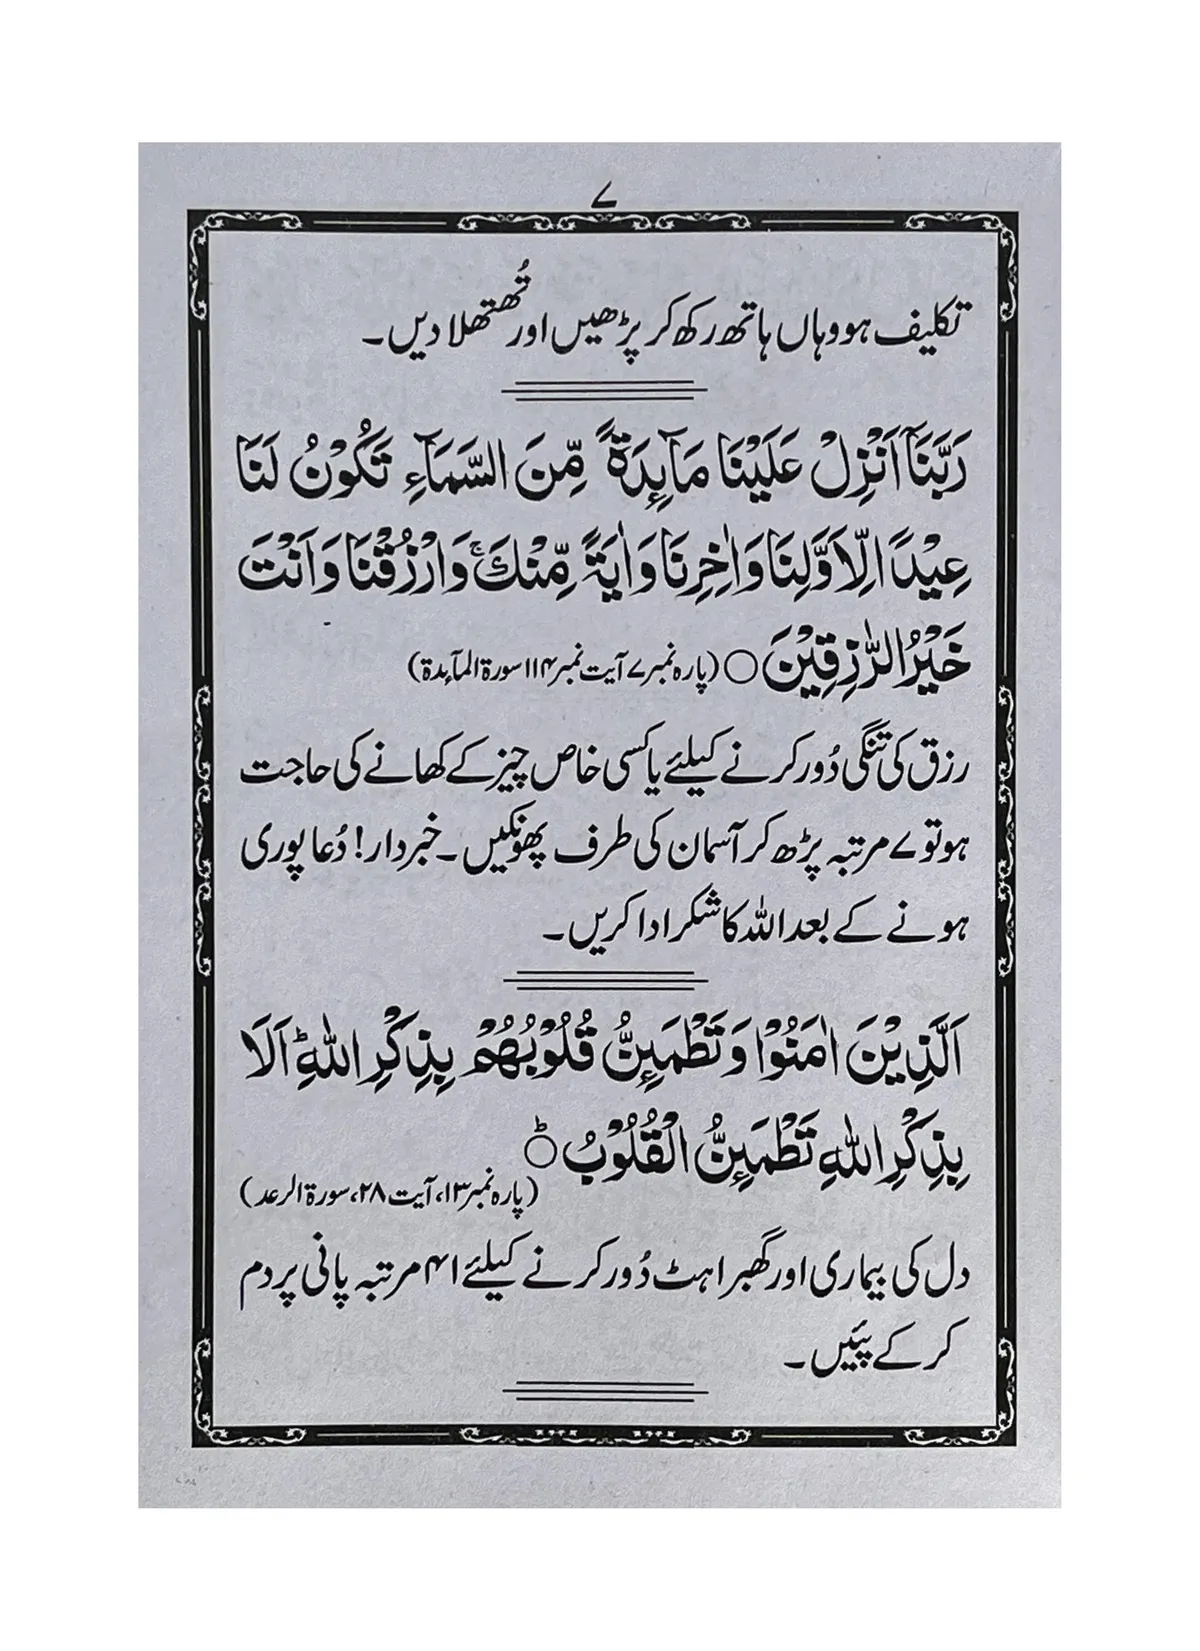 ۷
تکلیف ہو وہاں ہاتھ رکھ کر پڑھیں اور تُھتھلا دیں۔
رَبَّنَاۤ اَنْزِلْ عَلَیْنَا مَآىِٕدَةً مِّنَ السَّمَآءِ تَكُوْنُ لَنَا
عِیْدًا لِّاَوَّلِنَا وَاٰخِرِنَا وَاٰیَةً مِّنْكَ ۚ وَارْزُقْنَا وَاَنْتَ
خَیْرُ الرّٰزِقِیْنَ ○ (پارہ نمبر ۷ آیت نمبر ۱۱۴ سورۃ المآىٕدۃ)
رزق کی تنگی دُور کرنے کیلئے یا کسی خاص چیز کے کھانے کی حاجت
ہو تو ۷ مرتبہ پڑھ کر آسمان کی طرف پھونکیں۔ خبردار! دُعا پوری
ہونے کے بعد اللہ کا شکر ادا کریں۔
اَلَّذِیْنَ اٰمَنُوْا وَتَطْمَىِٕنُّ قُلُوْبُهُمْ بِذِكْرِ اللّٰهِ ؕ اَلَا
بِذِكْرِ اللّٰهِ تَطْمَىِٕنُّ الْقُلُوْبُ ○ؕ
(پارہ نمبر ۱۳، آیت ۲۸، سورۃ الرعد)
دل کی بیماری اور گھبراہٹ دُور کرنے کیلئے ۴۱ مرتبہ پانی پر دم
کر کے پئیں۔